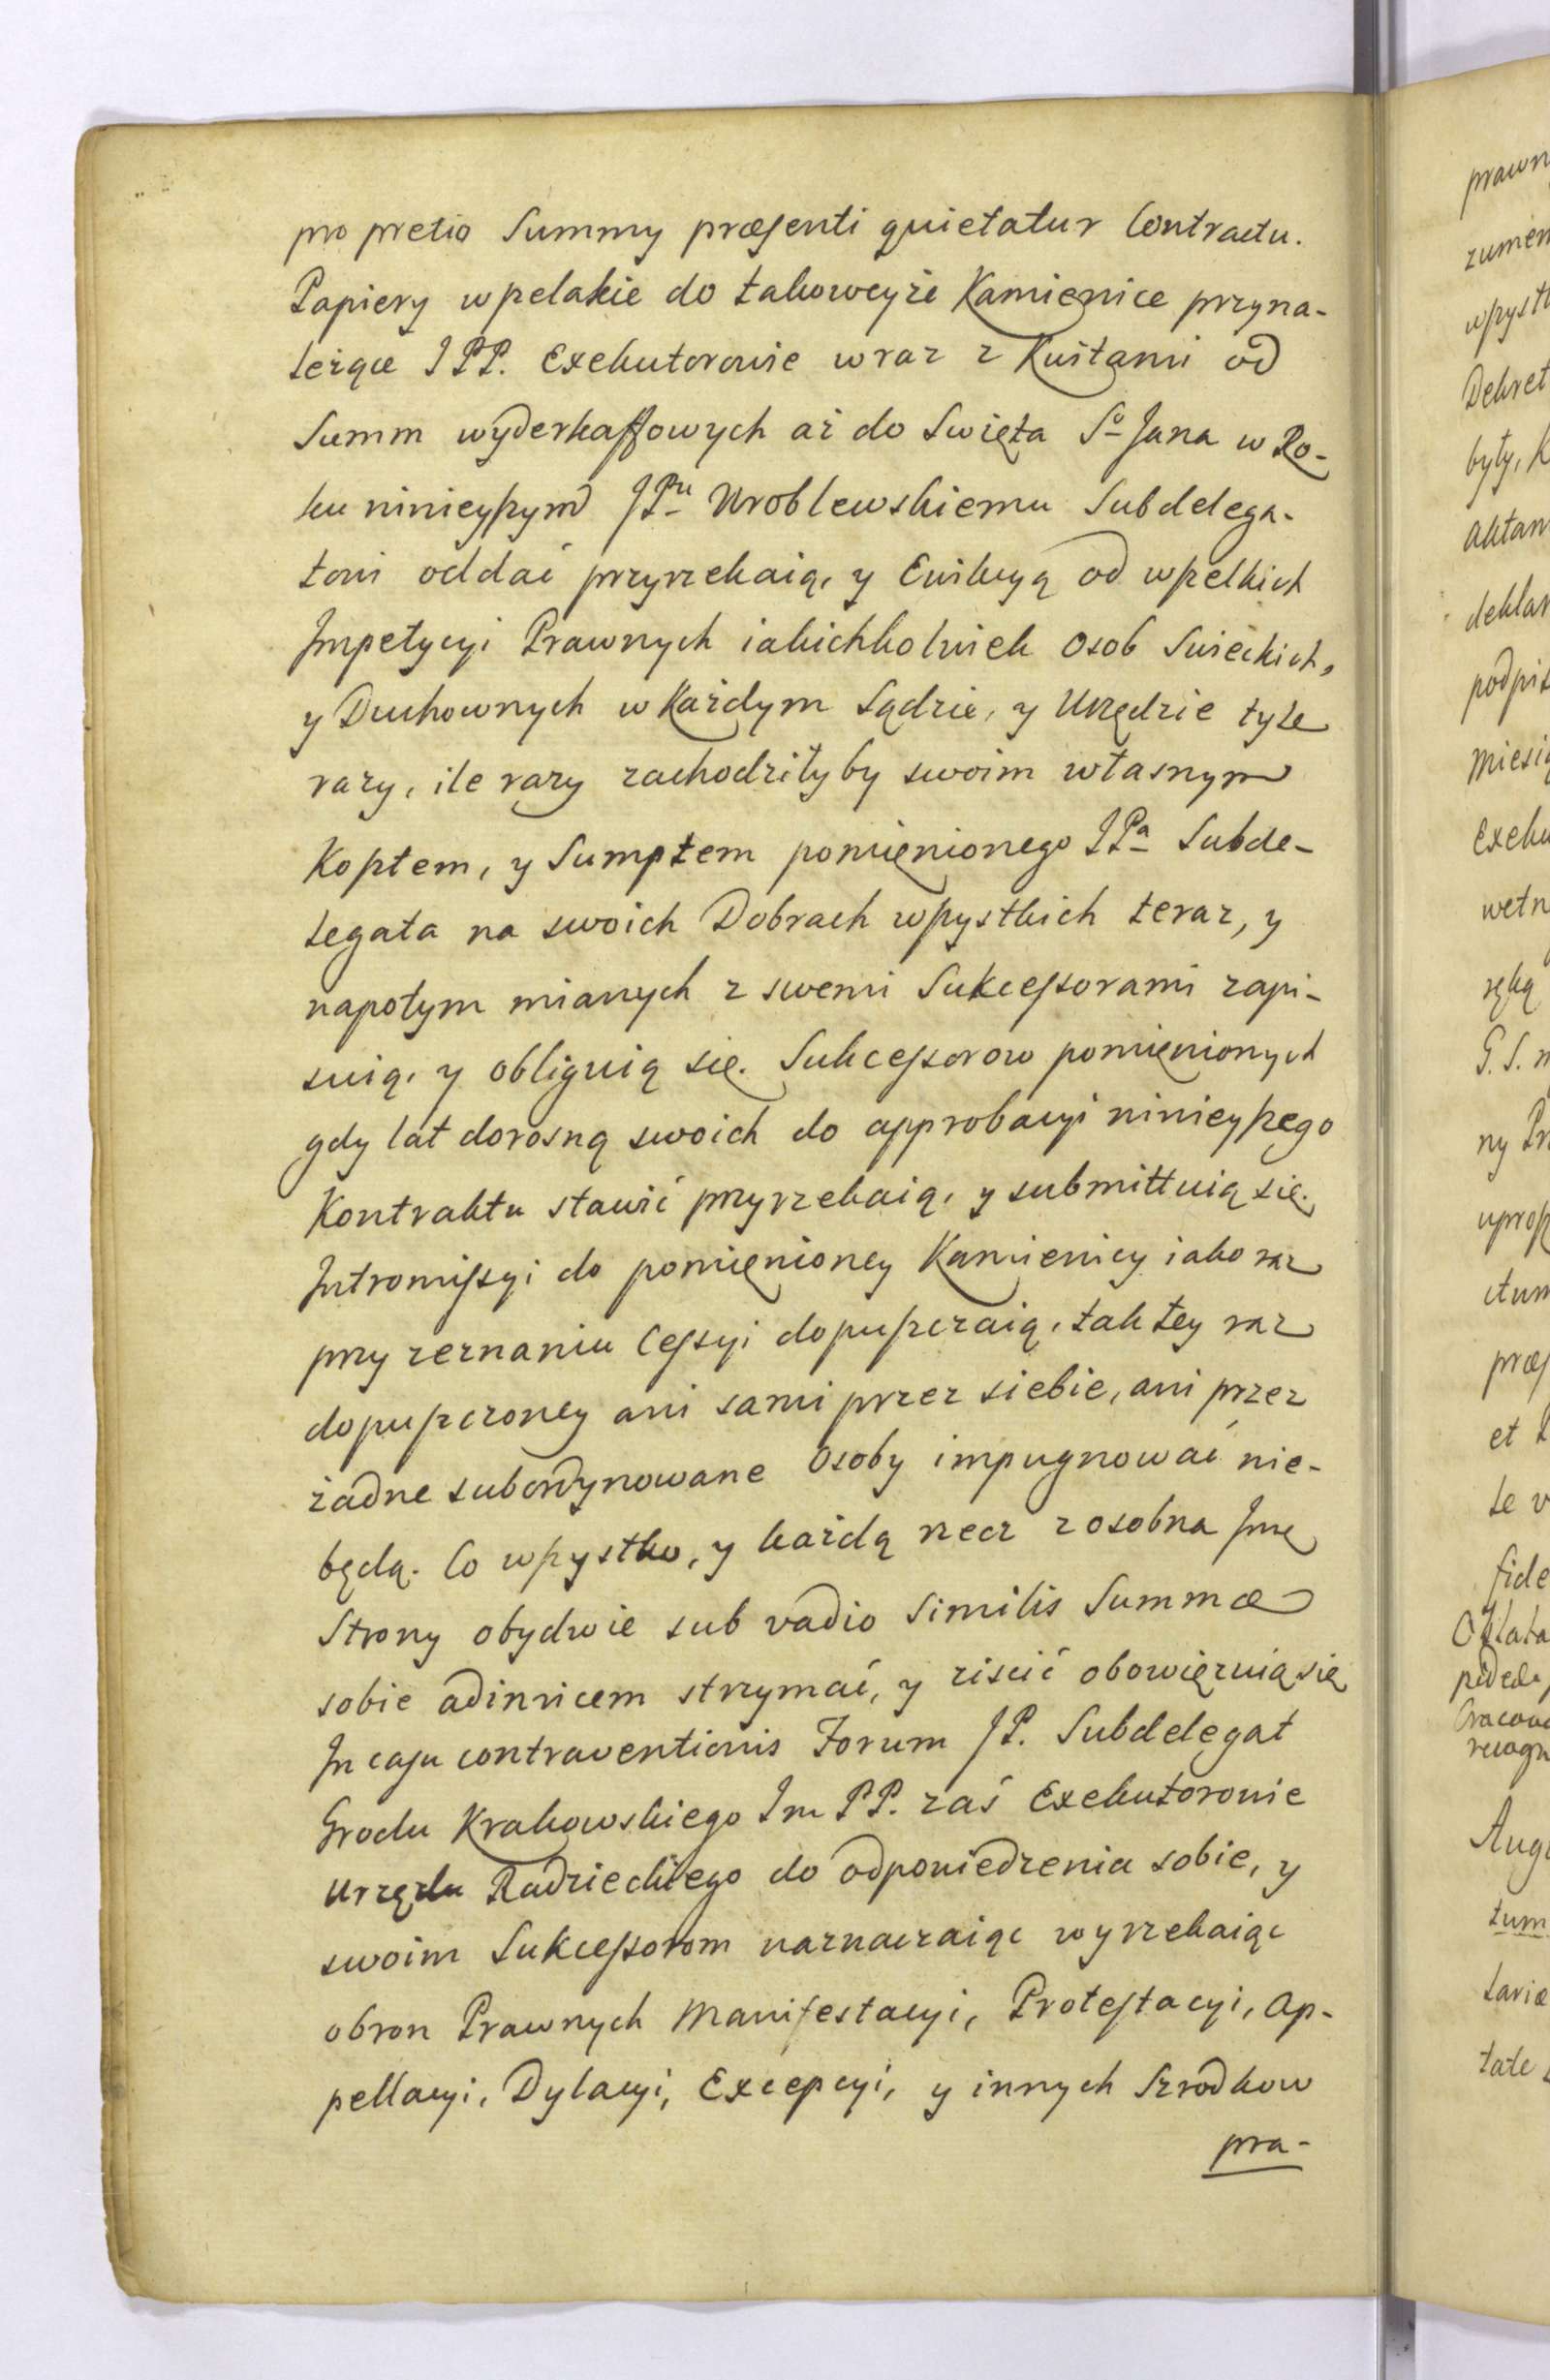 pro pretio Summy præsenti quietatur Contractu.
Papiery wszelakie do takoweyże Kamienice przyna-
leżące J PP. Exekutorowie wraz z Kwitami od
Summ wyderkaffowych aż do Swięta Sº Jana w Ro-
ku ninieyszym JPnu Wroblewskiemu Subdelega-
towi oddać przyrzekaią, y Ewikcyą od wszelkich
Impetycyi Prawnych iakichkolwiek Osob Swieckich,
y Duchownych w Każdym Sądzie, y Urzędzie tyle
razy, ile razy zachodziłyby swoim własnym
Kosztem, y Sumptem pomięnionego JPa Subde-
legata na swoich Dobrach wszystkich teraz, y
napotym mianych z swemi Sukcessorami zapi-
suią, y obliguią się. Sukcessorow pomięnionych
gdy lat dorosną swoich do approbacyi ninieyszego
Kontraktu stawić przyrzekaią, y submittuią się.
Intromissyi do pomięnioney Kamienicy iako raz
przy zeznaniu Cessyi dopuszczaią, tak tey raz
dopuszczoney ani sami przez siebie, ani przez
żadne subordynowane Osoby impugnować nie-
będą. Co wszystko, y każdą rzecz zosobna Jme
Strony obydwie sub vadio Similis Summæ
sobie adinvicem strzymać, y ziścić obowięzuią się
In casu contraventionis Forum JP. Subdelegat
Grodu Krakowskiego Jm PP. zaś Exekutorowie
Urzędu Radzieckiego do odpowiedzenia sobie, y
swoim Sukcessorom naznaczaiąc wyrzekaiąc
obron Prawnych Manifestacyi, Protestacyi, Ap-
pellacyi, Dylacyi, Excepcyi, y innych Szrodkow
pra-
prawn
zumien
wszystk
Dekret
były, K
Aktam
deklar
podpis
Miesią
Exeku
ręką
G. S. m
ny Pr
uprosz
ctum
præs
et
te v
fide
Oblata
Augu
tum
tariæ
tate